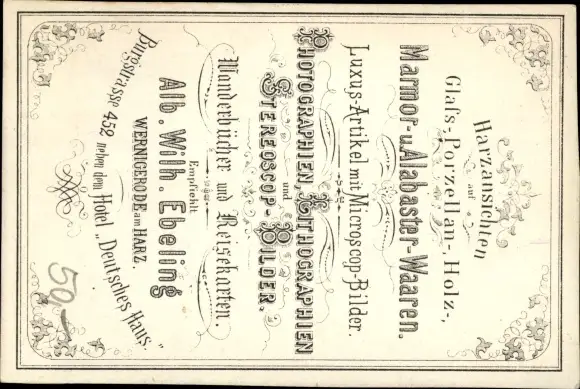 Harzansichten
auf
Glafs-, Porzellan-, Holz-,
Marmor- u. Alabaster-Waaren.
Luxus-Artikel mit Microscop-Bilder.
PHOTOGRAPHIEN, LITHOGRAPHIEN
und
STEREOSCOP-BILDER.
Wanderbücher und Reisekarten.
Empfiehlt
Alb. Wilh. Ebeling
WERNIGERODE am HARZ.
Burgstrasse 452 neben dem Hotel „Deutsches Haus."
50-